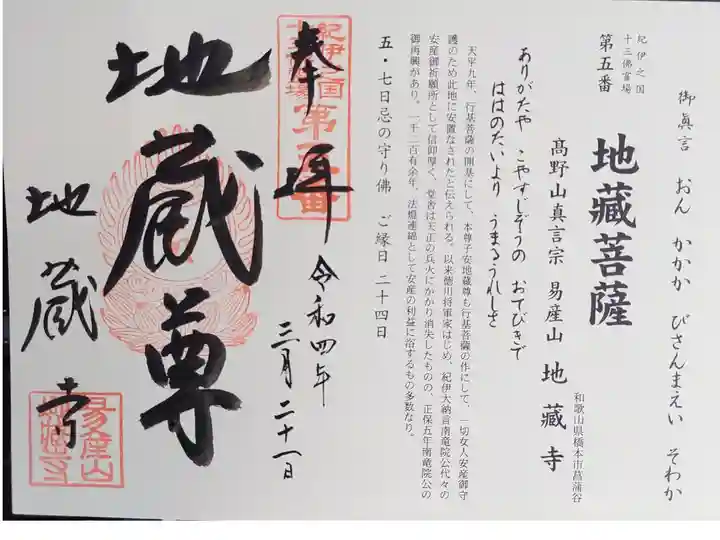 御真言 おん かかか びさんまえい そわか
紀伊之国
十三佛霊場
第五番
地藏菩薩
和歌山県橋本市菖蒲谷
高野山真言宗 易産山 地藏寺
ありがたや こやすじぞうの おてびきで
ははのたいより うまるうれしさ
天平九年、行基菩薩の開基にして、本尊子安地蔵尊も行基菩薩の作にして、一切女人安産御守
護のため此地に安置なされたと伝えられる。以来徳川将軍家はじめ、紀伊大納言南竜院公代々の
安産御祈願所として信仰厚く、堂舎は天正の兵火にかかり消失したものの、正保五年南竜院公の
御再興があり。一千二百有余年、法燈連綿として安産の利益に浴するもの多数なり。
五・七日忌の守り佛 ご縁日 二十四日
紀伊之国
十三佛霊場
第五番
奉拝
令和四年
三月二十一日
地蔵尊
地蔵寺
易産山
地蔵寺